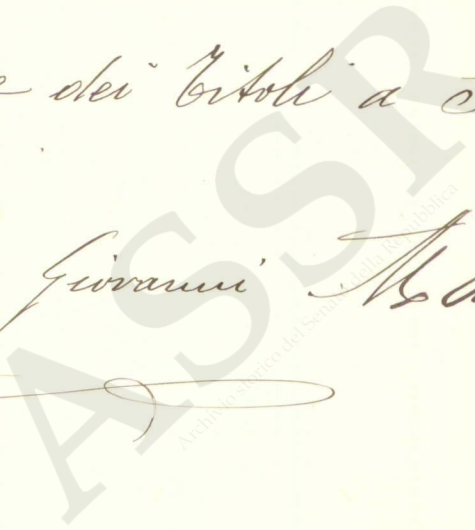 dei Titoli a
Giovanni
ASSR
Archivio storico del Senato della Repubblica